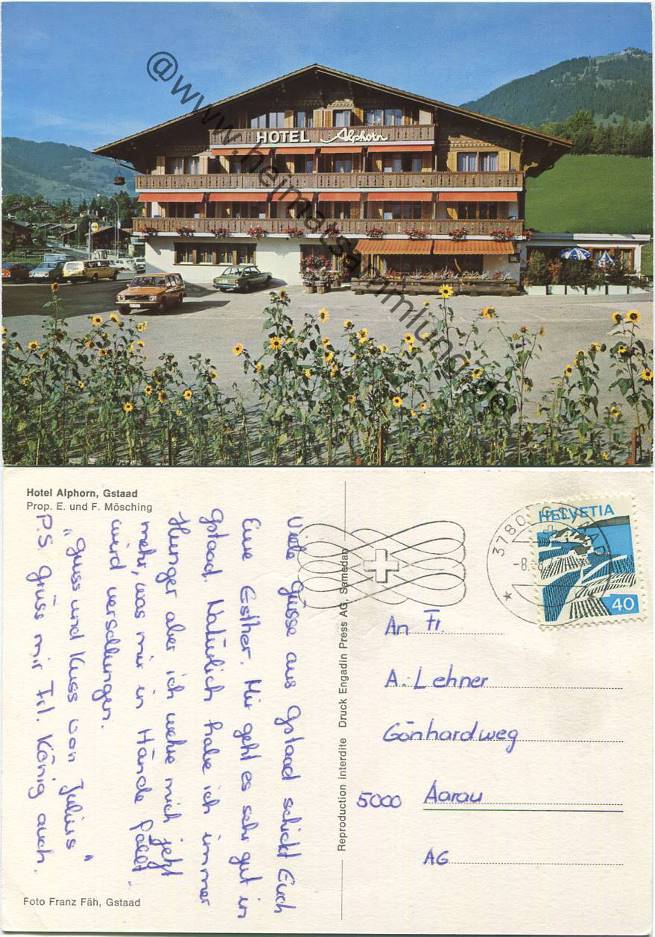 HOTEL Alphorn
@www.heimatsammlung.de
Hotel Alphorn, Gstaad
Prop. E. und F. Mösching
Viele Grüsse aus Gstaad schickt Euch
Eure Esther. Mir geht es sehr gut in
Gstaad. Natürlich habe ich immer
Hunger aber ich wehre mich jetzt
mehr, was mir in Hände fällt
wird verschlungen.
"Gruss und Kuss von Julius"
P.S. Grüss mir Frl. König auch.
Foto Franz Fäh, Gstaad
Reproduction interdite Druck Engadin Press AG, Samedan
3780 GSTAAD
-8.
HELVETIA
40
An Fr.
A. Lehner
Gönhardweg
5000 Aarau
AG